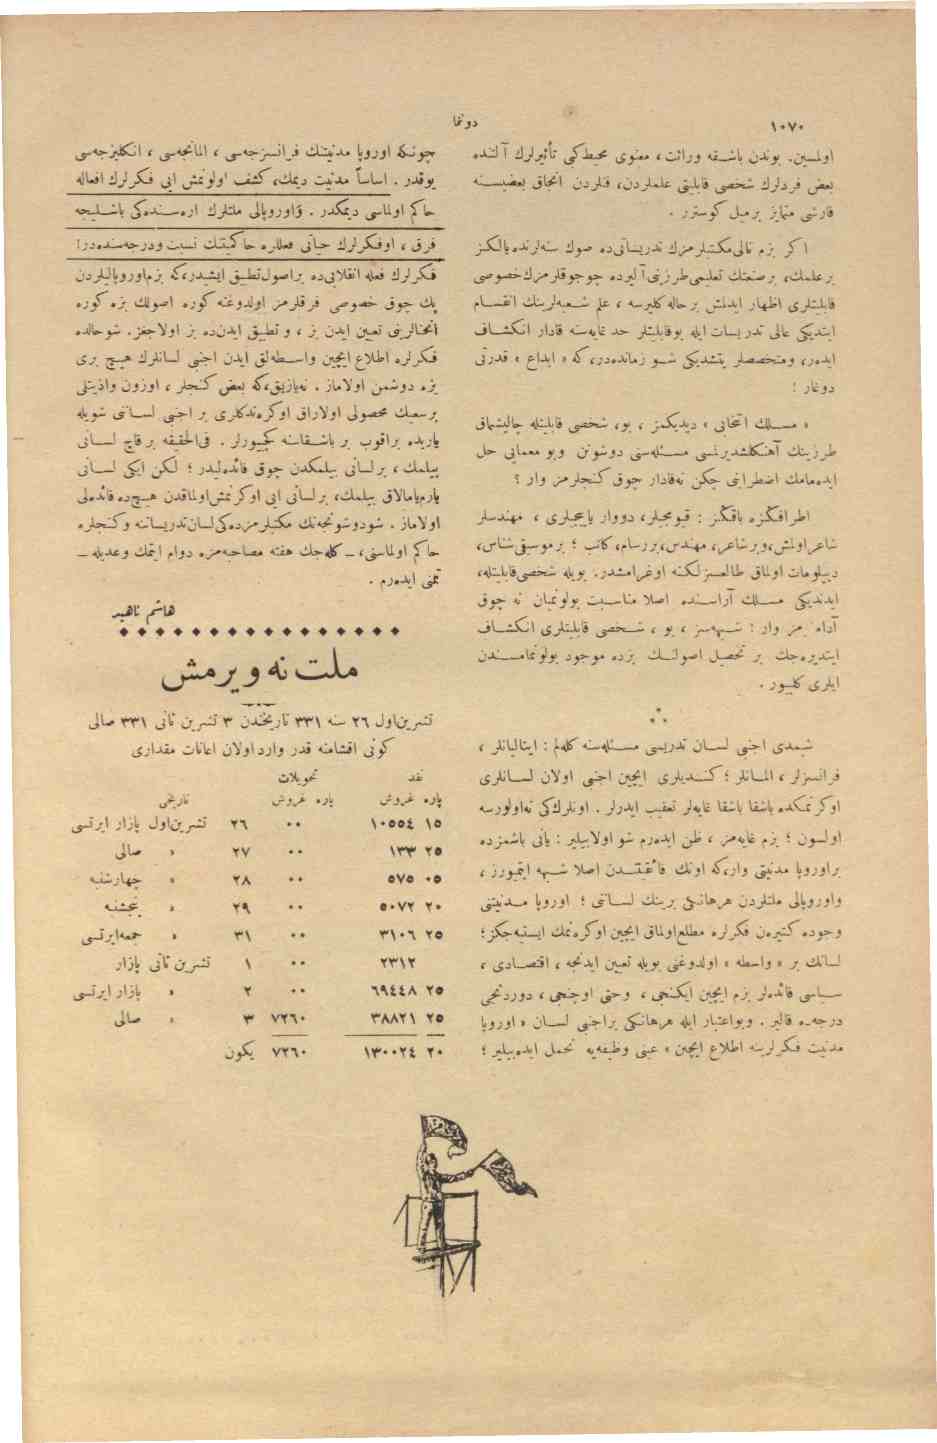 دوننما
١٠٧٠
اولمسین. بوندن باشـقه وراثت، معنوی محیط‌کی تأثیرلرك آلتنده
بعض فردلرك شخصی قابلیتی علملردن، فنلردن انجاق بعضیسـنه
قارشی متمایز برمیل کوسترر .
اکر بزم عالی‌مکتبلرمزك تدریساتی‌ده صوك سنه‌لرنده‌یالکز
برعلمك، برصنعتك تعلیمی‌طرزینی‌آلیرده چوجوقلرمزك‌خصوصی
قابلیتلری اظهار ایدلمش برحاله کلیرسه ، علم شـعبه‌لرینك انقسـام
ایتدیکی عالی تدریسات ایله بوقابلیتلر حد غایه‌سنه قادار انکشـاف
ایده‌ر، ومتخصصلر یتشدیکی شـو زمانده‌در، که « ابداع » قدرتی
دوغار !
« مسـلك انتخابی » دیدیکمز ، بو، شخصی قابلیتله چالیشماق
طرزینك آهنکلشدیرلمسی مسـئله‌سنی دوشونن وبو معمایی حل
ایده‌مامك اضطرابنی چکن نه‌قادار چوق کنجلرمز وار ؟
اطرافکزه باقکز : قیومجیلر، دووار یاپیجیلری ، مهندسلر
شاعراولمش،وبرشاعر، مهندس،بررسام، کاتب ؛ برموسیقی‌شناس،
دیپلومات اولماق طالعسـزلکنه اوغرامشدر. بویله شخصی‌قابلیتله،
ایدندیکی مسـلك آراسـنده اصلا مناسـبت بولونمیان نه چوق
آدامـمز وار : شـبهه‌سز ، بو ، شـخصی قابلیتلری انکشـاف
ایتدیره‌جك بر تحصیل اصولنـك بزده موجود بولونمامسـندن
ایلری کلیـور .
⁂
شـمدی اجنبی لسـان تدریسی مسـئله‌سنه کله‌لم : ایتالیانلر ،
فرانسزلر ، المـانلر ؛ کنـدیلری ایچین اجنبی اولان لسـانلری
اوکرنمکده باشقا باشقا غایه‌لر تعقیب ایدرلر . اونلرك‌کی نه‌اولورسه
اولسون ؛ بزم غایه‌مز ، ظن ایده‌رم شو اولابیلیر : یانی باشمزده
براوروپا مدنیتی وار،که اونك فائقیتـدن اصلا شـبهه ایتمیورز ،
واوروپالی ملتلردن هرهانـکی برینك لسـانی ؛ اوروپا مـدنیتنی
وجوده کتیره‌ن فکرلره مطلع‌اولماق ایچین اوکره‌نمك ایسته‌یه‌جکز؛
لسانك بر « واسطه » اولدوغنی بویله تعیین ایدنجه ، اقتصـادی ،
سـیاسی فائده‌لر بزم ایچین ایکنجی ، وحتی اوچنجی ، دوردنجی
درجه‌ده قالیر . وبواعتبار ایله هرهانـکی براجنبی لسـان « اوروپا
مدنیت فکرلرینه اطلاع ایچین » عینی وظیفه‌یه تحمل ایده‌بیلیر ؛
چونـکه اوروپا مدنیتنك فرانسزجه‌سی ، المانجه‌سی ، انکلیزجه‌سی
یوقدر . اساساً مدنیت دیمك، کشف اولونمش ایی فـکرلرك افعاله
حاکم اولماسی دیمکدر . واوروپالی ملتلرك اره‌سـنده‌کی باشـلیجه
فرق ، اوفـکرلرك حیاتی فعللره حاکمیتنك نسبت ودرجه‌سنده‌در!
فـکرلرك فعله انقلابی‌ده براصول‌تطبیق ایشیدر،که بزم‌اوروپالیلردن
پك چوق خصوصی فرقلرمز اولدوغنه کوره اصولك بزه کوره
انحنالرینی تعیین ایدن بز ، و تطبیق ایدن‌ده بز اولاجغز. شوحالده
فـکرلره اطلاع ایچین واسـطه‌لق ایدن اجنبی لسـانلرك هیـچ بری
بزه دوشمن اولاماز . نه‌یازیق،که بعض کنجلر ، اوزون واذیتلی
برسعیك محصولی اولاراق اوکره‌ندکلری بر اجنبی لسـانی شویله
یاریده براقوب بر باشـقاسنه کچیورلر . فی‌الحقیقه برقاچ لسـانی
بیلمك ، برلسانی بیلمکدن چوق فائده‌لیدر ؛ لـکن ایکی لسـانی
یارم‌یامالاق بیلمك، برلسانی ایی اوکرنمش‌اولماقدن هیـچ‌ده فائده‌لی
اولاماز . شودوشونجه‌نك مکتبلرمزده‌کی‌لسان‌تدریساتنه وکنجلره
حاکم اولماسنی، ـ کله‌جك هفته مصاحبه‌مزه دوام ایتمك وعدیله ـ
تمنی ایده‌رم .
هاشم ناهید
ملت نه ویرمش
تشرین‌اول ٢٦ سنه ٣٣١ تاریخندن ٣ تشرین ثانی ٣٣١ صالی
کونی اقشامنه قدر وارد اولان اعانات مقداری
نقد تحویلات
پاره غروش پاره غروش تاریخی
١٥ ١٠٥٥٤ ٠٠ ٢٦ تشرین‌اول پازار ایرتسی
٢٥ ١٣٣ ٠٠ ٢٧ » صالی
٠٥ ٥٧٥ ٠٠ ٢٨ » چهارشنبه
٢٠ ٥٠٧٢ ٠٠ ٢٩ » پنجشنبه
٢٥ ٣١٠٦ ٠٠ ٣١ » جمعه‌ایرتسی
٢٣١٢ ٠٠ ١ تشرین ثانی پازار
٢٥ ٦٩٤٤٨ ٠٠ ٢ » پازار ایرتسی
٢٥ ٣٨٨٢١ ٧٢٦٠ ٣ » صالی
٢٠ ١٣٠٠٢٤ ٧٢٦٠ یکون